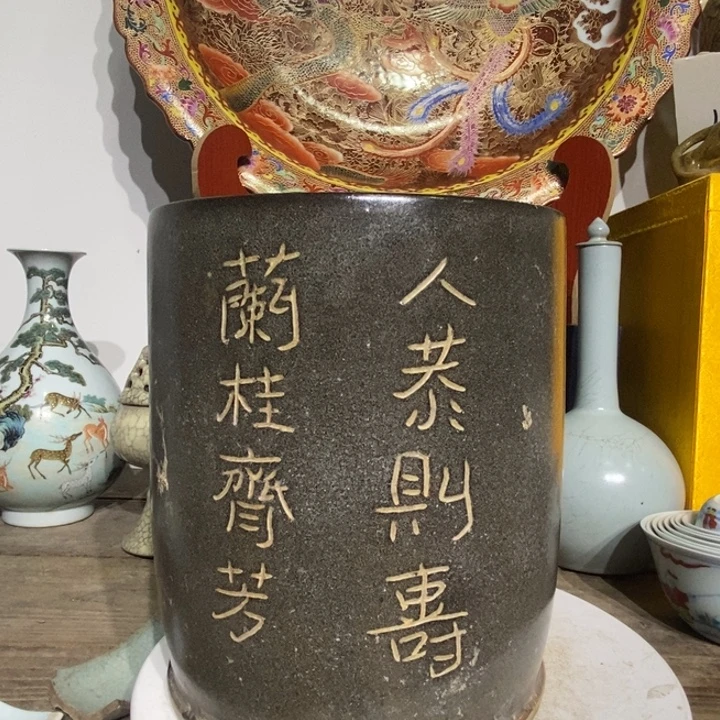 人恭則壽
蘭桂齊芳